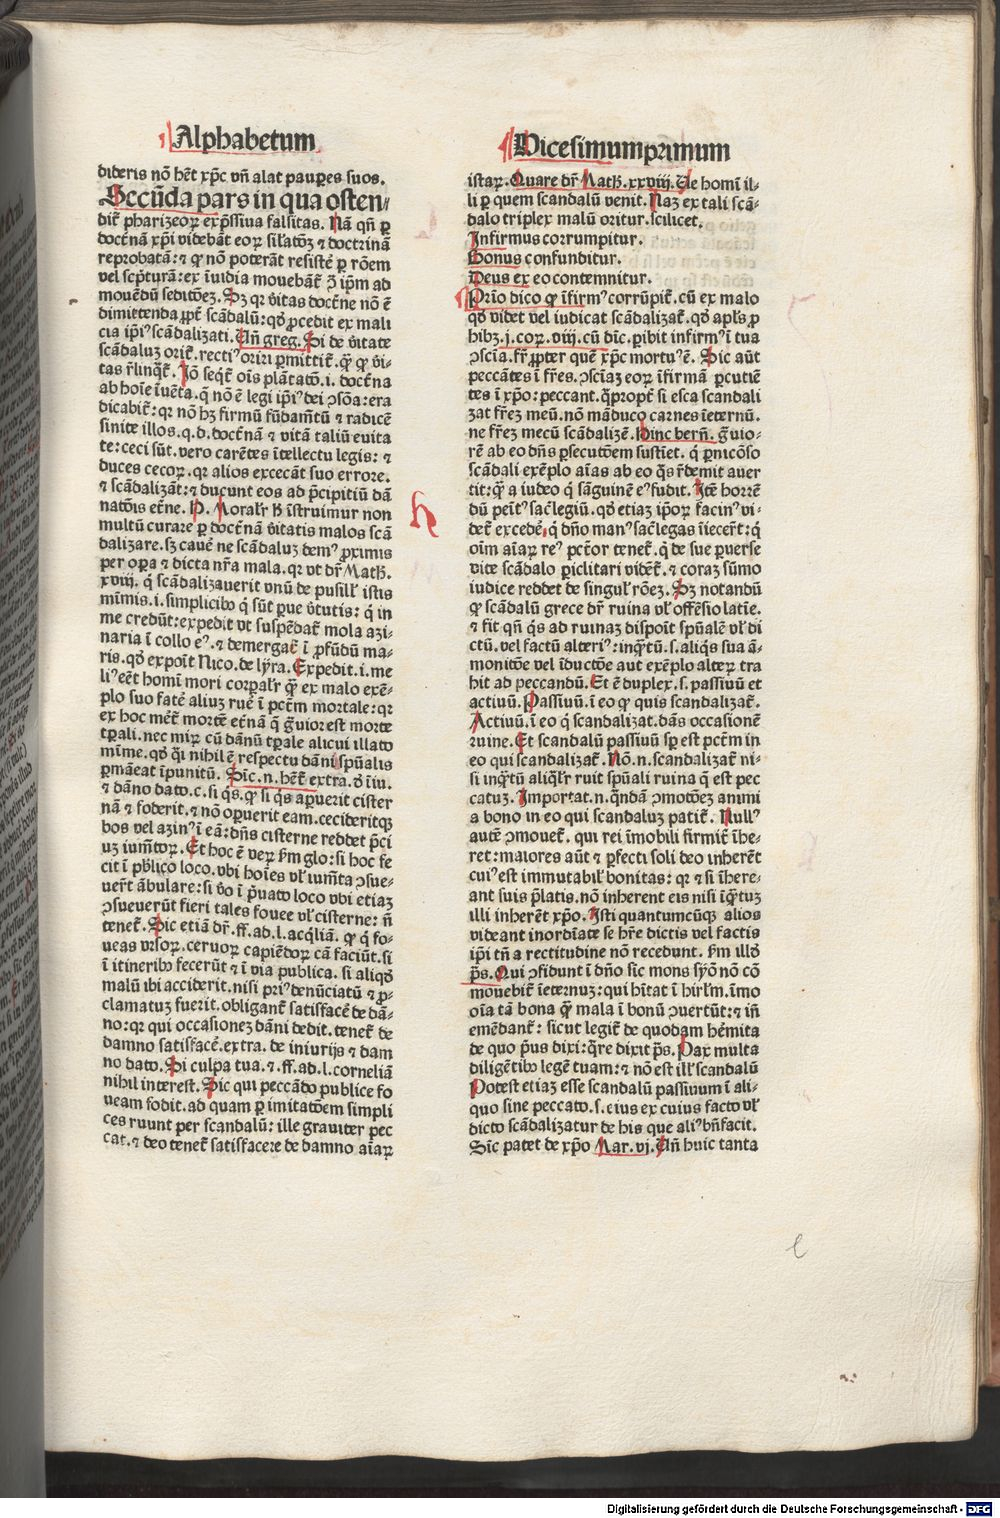 Alphabetum
dideris nō hēt xp̄c vñ alat paup̲es suos.
Secūda pars in qua osten⸗
dit᷑ pharizeoꝝ exp̄ssiua falsitas. Nā qñ ꝑ
doct᷑nā xp̄i videbāt eoꝝ sil'atōꝫ ⁊ doctrinā
reprobatā: ⁊ ꝙ nō poterāt resist᷑e ꝑ rōem
vel sc̄pturā: ex īuidia mouebāt᷑ ꝯ̄ ip̄m ad
mouēdū seditōeꝫ. Sꝫ qꝛ v̄itas doct᷑ne nō ē
dimittenda ꝓpt᷑ scādalū: qd̄ ꝓcedit ex mali
cia ip̄iꝰ scādalizati. Vñ greg. Si de v̄itate
scādaluꝫ orit᷑. rectiꝰ oriri ꝑmittit᷑. q̄ꝫ ꝙ v̄i⸗
tas r̄linq̄t᷑. Iō seqt᷑ oīs plātatō. i. doct᷑na
ab hoīe īuēta. q̄ nō ē legi ip̄iꝰ dei ꝯsōa: era
dicabit᷑: qꝛ nō hꝫ firmū fūdam̄tū ⁊ radicē
sinite illos. q. d. doct᷑nā ⁊ vitā taliū euita
te: ceci sūt. vero carētes ītellectu legis: ⁊
duces cecoꝝ. qꝛ alios excecāt suo errore.
⁊ scādalizāt: ⁊ ducunt eos ad p̄cipitiū dā
natōis et᷑ne. Moral'r h̄ īstruimur non
multū curare ꝑ doct᷑nā v̄itatis malos scā
dalizare. sꝫ caue᷑ ne scādaluꝫ demꝰ ꝓximis
per oꝑa ⁊ dicta nr̄a mala. qꝛ vt dr̄ Math̄.
xviij. q̇ scādalizauerit vnū de pusill' istis
mīmis. i. simplicibꝰ q̇ sūt ꝑue v̄tutis: q̇ in
me credūt: expedit vt suspēdat᷑ mola azi⸗
naria ī collo eꝰ. ⁊ demergat᷑ ī ꝓfūdū ma⸗
ris. qd̄ expoīt Nico. de lyra. Expedit. i. me
liꝰ eēt homī mori corꝑal'r q̄ꝫ ex malo exē⸗
plo suo fate᷑ aliuꝫ rue᷑ ī pct̄m mortale: qꝛ
ex hoc met᷑ morte᷑ et᷑nā q̄ g̈uior est morte
tꝑali. nec miꝝ cū dānū tꝑale alicui illato
mīme. qd̄ q̄i nihil ē respectu dāni spūalis
ꝑmāeat īpunitū. Sic. n. hēt᷑ extra. d̄ iniu.
⁊ dāno dato. c. si q̇s. ꝙ si q̇s aꝑuerit cister
nā ⁊ foderit. ⁊ nō oꝑuerit eam. cecideritqꝫ
bos vel azinꝰ ī eā: dn̄s cisterne reddet p̄ci
uꝫ ium̄toꝝ. Et hoc ē veꝝ ẜm glo: si hoc fe
cit ī pb̄lico loco. vbi hoīes vl' ium̄ta ꝯsue⸗
uer̄t ābulare: si v̄o ī p̄uato loco vbi etiaꝫ
ꝯsueuerūt fieri tales fouee vl' cisterne: n̄
tenet᷑. Sic etiā dr̄. ff. ad. l. acq̇liā. ꝙ q̇ fo⸗
ueas vrsoꝝ. ceruoꝝ capiēdoꝝ cā faciūt. si
ī itineribꝰ fecerūt ⁊ ī via publica. si aliqd̄
malū ibi acciderit. nisi priꝰ denūciatū ⁊ ꝓ⸗
clamatuꝫ fuerit. obligant᷑ satisface᷑ de dā⸗
no: qꝛ qui occasioneꝫ dāni dedit. tenet᷑ de
damno satisface᷑. extra. de iniurijs ⁊ dam
no dato. Si culpa tua. ⁊. ff. ad. l. corneliā
nihil interest. Sic qui peccādo publice fo
ueam fodit. ad quam ꝑ imitatōem simpli
ces ruunt per scandalū: ille grauiter pec
cat. ⁊ deo tenet᷑ satisfacere de damno aīaꝝ
Vicesimumprimum
istaꝝ. Quare dr̄ Math̄. xxviij. Ve homī il⸗
li ꝑ quem scandalū venit. Naꝫ ex tali scā⸗
dalo triplex malū oritur. scilicet.
Infirmus corrumpitur.
Bonus confunditur.
Deus ex eo contemnitur.
Prīo dico ꝙ īfirmꝰ corrūpit᷑. cū ex malo
qd̄ videt vel iudicat scādalizat᷑. qd̄ apl's ꝓ
hibꝫ. j. coꝝ. viij. cū dīc. ꝑibit infirmꝰ ī tua
ꝯscīa. fr̄ ꝓpter quē xp̄c mortuꝰ ē. Sic aūt
peccātes ī fr̄es. ꝯscīaꝫ eoꝝ īfirmā ꝑcutiē
tes ī xp̄o: peccant. q̄ꝓpt᷑ si esca scandali
zat fr̄eꝫ meū. nō māduco carnes īeternū.
ne fr̄eꝫ mecū scādalizē. Hinc bern̄. g̈uio⸗
rē ab eo dn̄s ꝑsecutōem sustīet. q̇ ꝑnicōso
scādali exēplo aīas ab eo q̄s r̄demit auer
tit: q̄ꝫ a iudeo q̇ sāguinē eꝰ fudit. Itē horrē
dū peitꝰ sac̄legiū. qd̄ etiaꝫ ip̄oꝝ facinꝰ vi⸗
det᷑ excede᷑. q̇ dn̄o manꝰ sac̄legas īiecer̄t: q̇
oīm aīaꝝ reꝰ pct̄or tenet᷑. q̇ de sue ꝑuerse
vite scādalo ꝑiclitari vidēt᷑. ⁊ coraꝫ sūmo
iudice reddet de singul' rōeꝫ. Sꝫ notandū
ꝙ scādalū grece dr̄ ruina vl' offēsio latīe.
⁊ fit qñ q̇s ad ruinaꝫ dispoīt spūalē vl' di
ctū. vel factū alteriꝰ: inq̄tū. s. aliq̇s sua ā⸗
monitōe vel īductōe aut exēplo alteꝝ tra
hit ad peccandū. Et ē duplex. s. passiuū et
actiuū. Passiuū. ī eo ꝙ quis scandalizat᷑.
Actiuū. ī eo q̇ scandalizat. dās occasionē
ruine. Et scandalū passiuū sꝑ est pct̄m in
eo qui scandalizat᷑. Nō. n. scandalizat᷑ ni⸗
si inq̄tū aliql'r ruit spūali ruina q̄ est pec
catuꝫ. Importat. n. q̄ndā ꝯmotōeꝫ animi
a bono in eo qui scandaluꝫ patit᷑. Nullꝰ
autē ꝯmouet᷑. qui rei īmobili firmit᷑ īhe⸗
ret: maiores aūt ⁊ ꝑfecti soli deo inherēt
cuiꝰ est immutabil' bonitas: qꝛ ⁊ si īhere⸗
ant suis p̄latis. nō inherent eis nisi īq̄tuꝫ
illi inherēt xp̄o. Isti quantumcūqꝫ alios
videant inordīate se hr̄e dictis vel factis
ip̄i tñ a rectitudine nō recedunt. ẜm illd̄
p̄s. Qui ꝯfidunt ī dn̄o sic mons syō nō cō
mouebit᷑ īeternuꝫ: qui hītat ī hirl'm. īmo
oīa tā bona q̄ꝫ mala ī bonū ꝯuertūt: ⁊ iñ
emēdant᷑: sicut legit᷑ de quodam hēmita
de quo p̄us dixi: q̄re dixit p̄s. Pax multa
diligētibꝰ legē tuam: ⁊ nō est ill' scandalū
Potest etiaꝫ esse scandalū passiuum ī ali⸗
quo sine peccato. s. eius ex cuius facto vl'
dicto scādalizatur de his que aliꝰ bn̄facit.
Sic patet de xp̄o Mar. vj. Vñ huic tanta
h
e
Digitalisierung gefördert durch die Deutsche Forschungsgemeinschaft - DFG